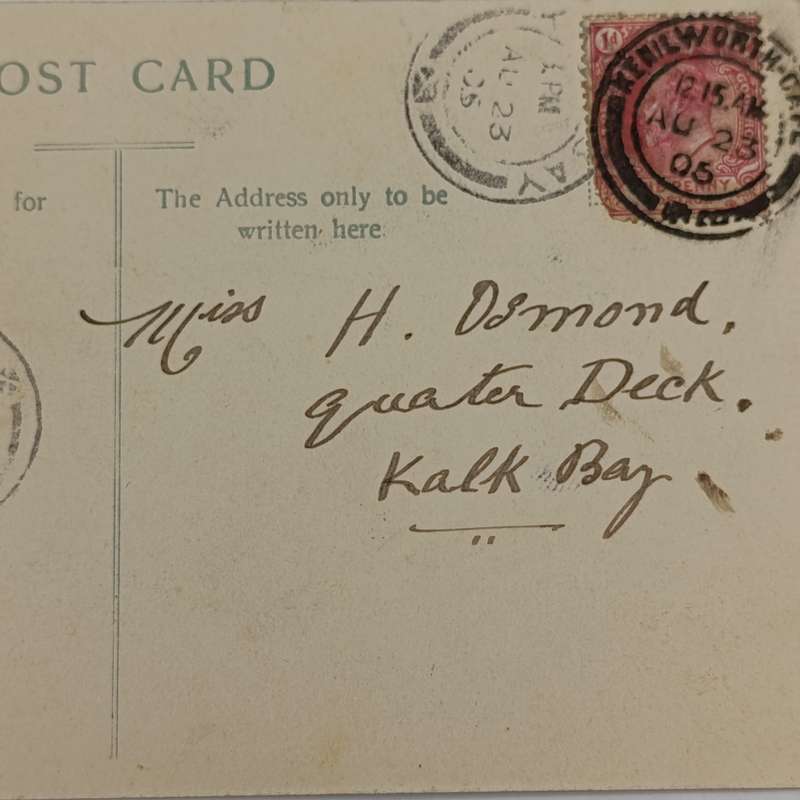 OST CARD
for
The Address only to be
written here.
Miss H. Osmond,
quater Deck.
Kalk Bay
1d
KENILWORTH-CAPE
12.15.AM
AU 23
05
PM
AU 23
05